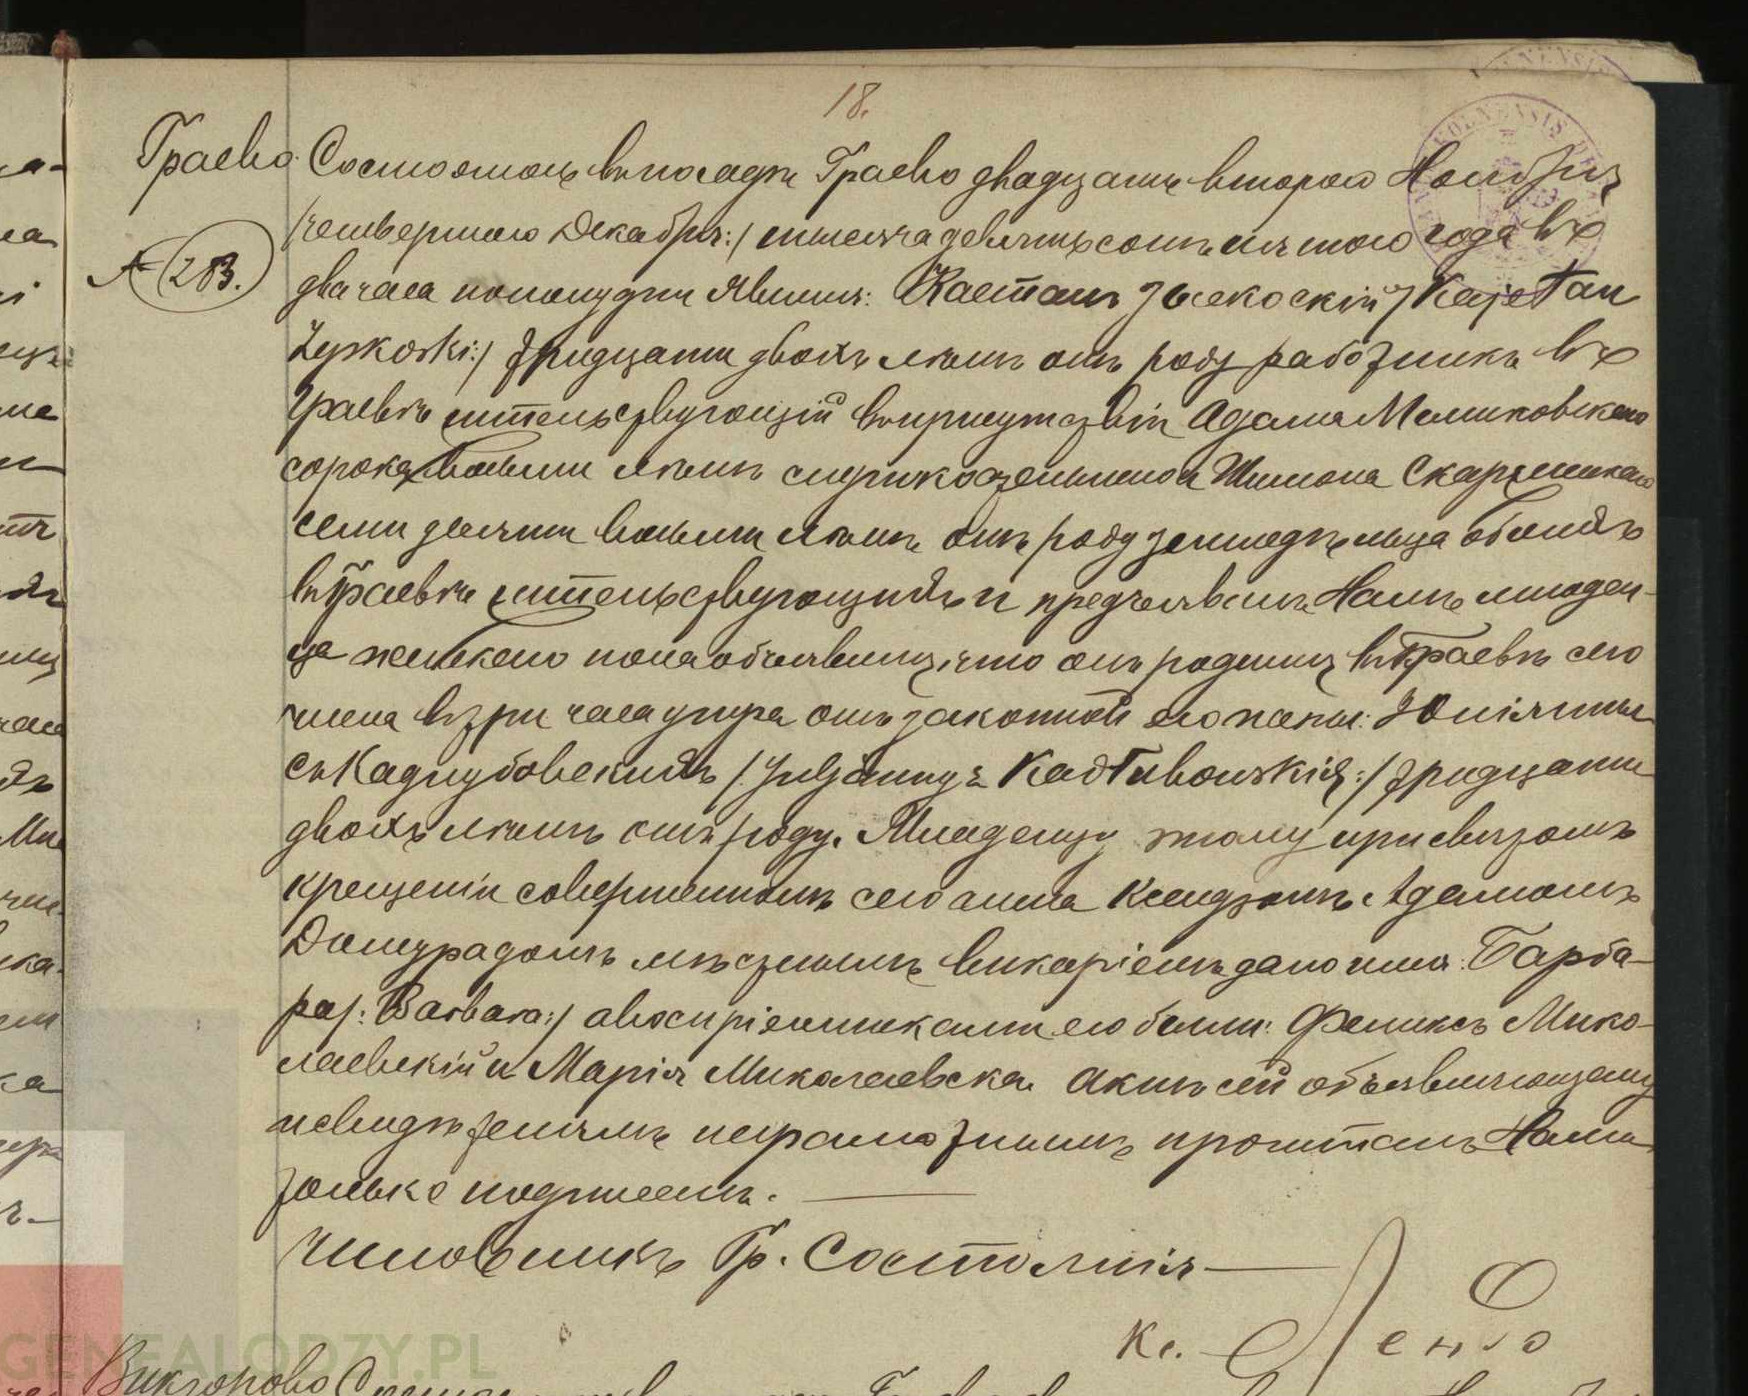 18.
Граево. Состоялось въ посадѣ Граево двадцать второго Ноября
№ 283. /четвертаго Декабря:/ тысяча девятьсотъ пятаго года въ
два часа пополудни. Явился: Каетанъ Зыскоскій /Kajetan
Zyskoski:/ тридцати двохъ лѣтъ отъ роду работникъ въ
Граевѣ жительствующій въ присутствіи Адама Меликовскаго
сорока восьми лѣтъ и Шимона Скаржинскаго
семидесяти восьми лѣтъ отъ роду земледѣльца обоихъ
въ Граевѣ жительствующихъ и предъявилъ Намъ младен-
ца женскаго пола объявляя, что онъ родился въ Граевѣ сего
числа въ три часа утра отъ законной его жены: Юліянны
съ Кадлубовскихъ /Juljanny z Kadłubowskich:/ тридцати
двохъ лѣтъ отъ роду. Младенцу этому при святомъ
крещеніи совершенномъ сего числа Ксендзомъ Адамомъ
мѣстнымъ викаріемъ дано имя: Барба-
ра/: Barbara:/ а воспріемниками его были: Феликсъ Мико-
лаевскій и Марія Миколаевска. Актъ сей объявляющему
и свидѣтелямъ неграмотнымъ прочитанъ Нами
только подписанъ.
Чиновникъ Гр. Состоянія
Кс.
Викторово
GENEALODZY.PL